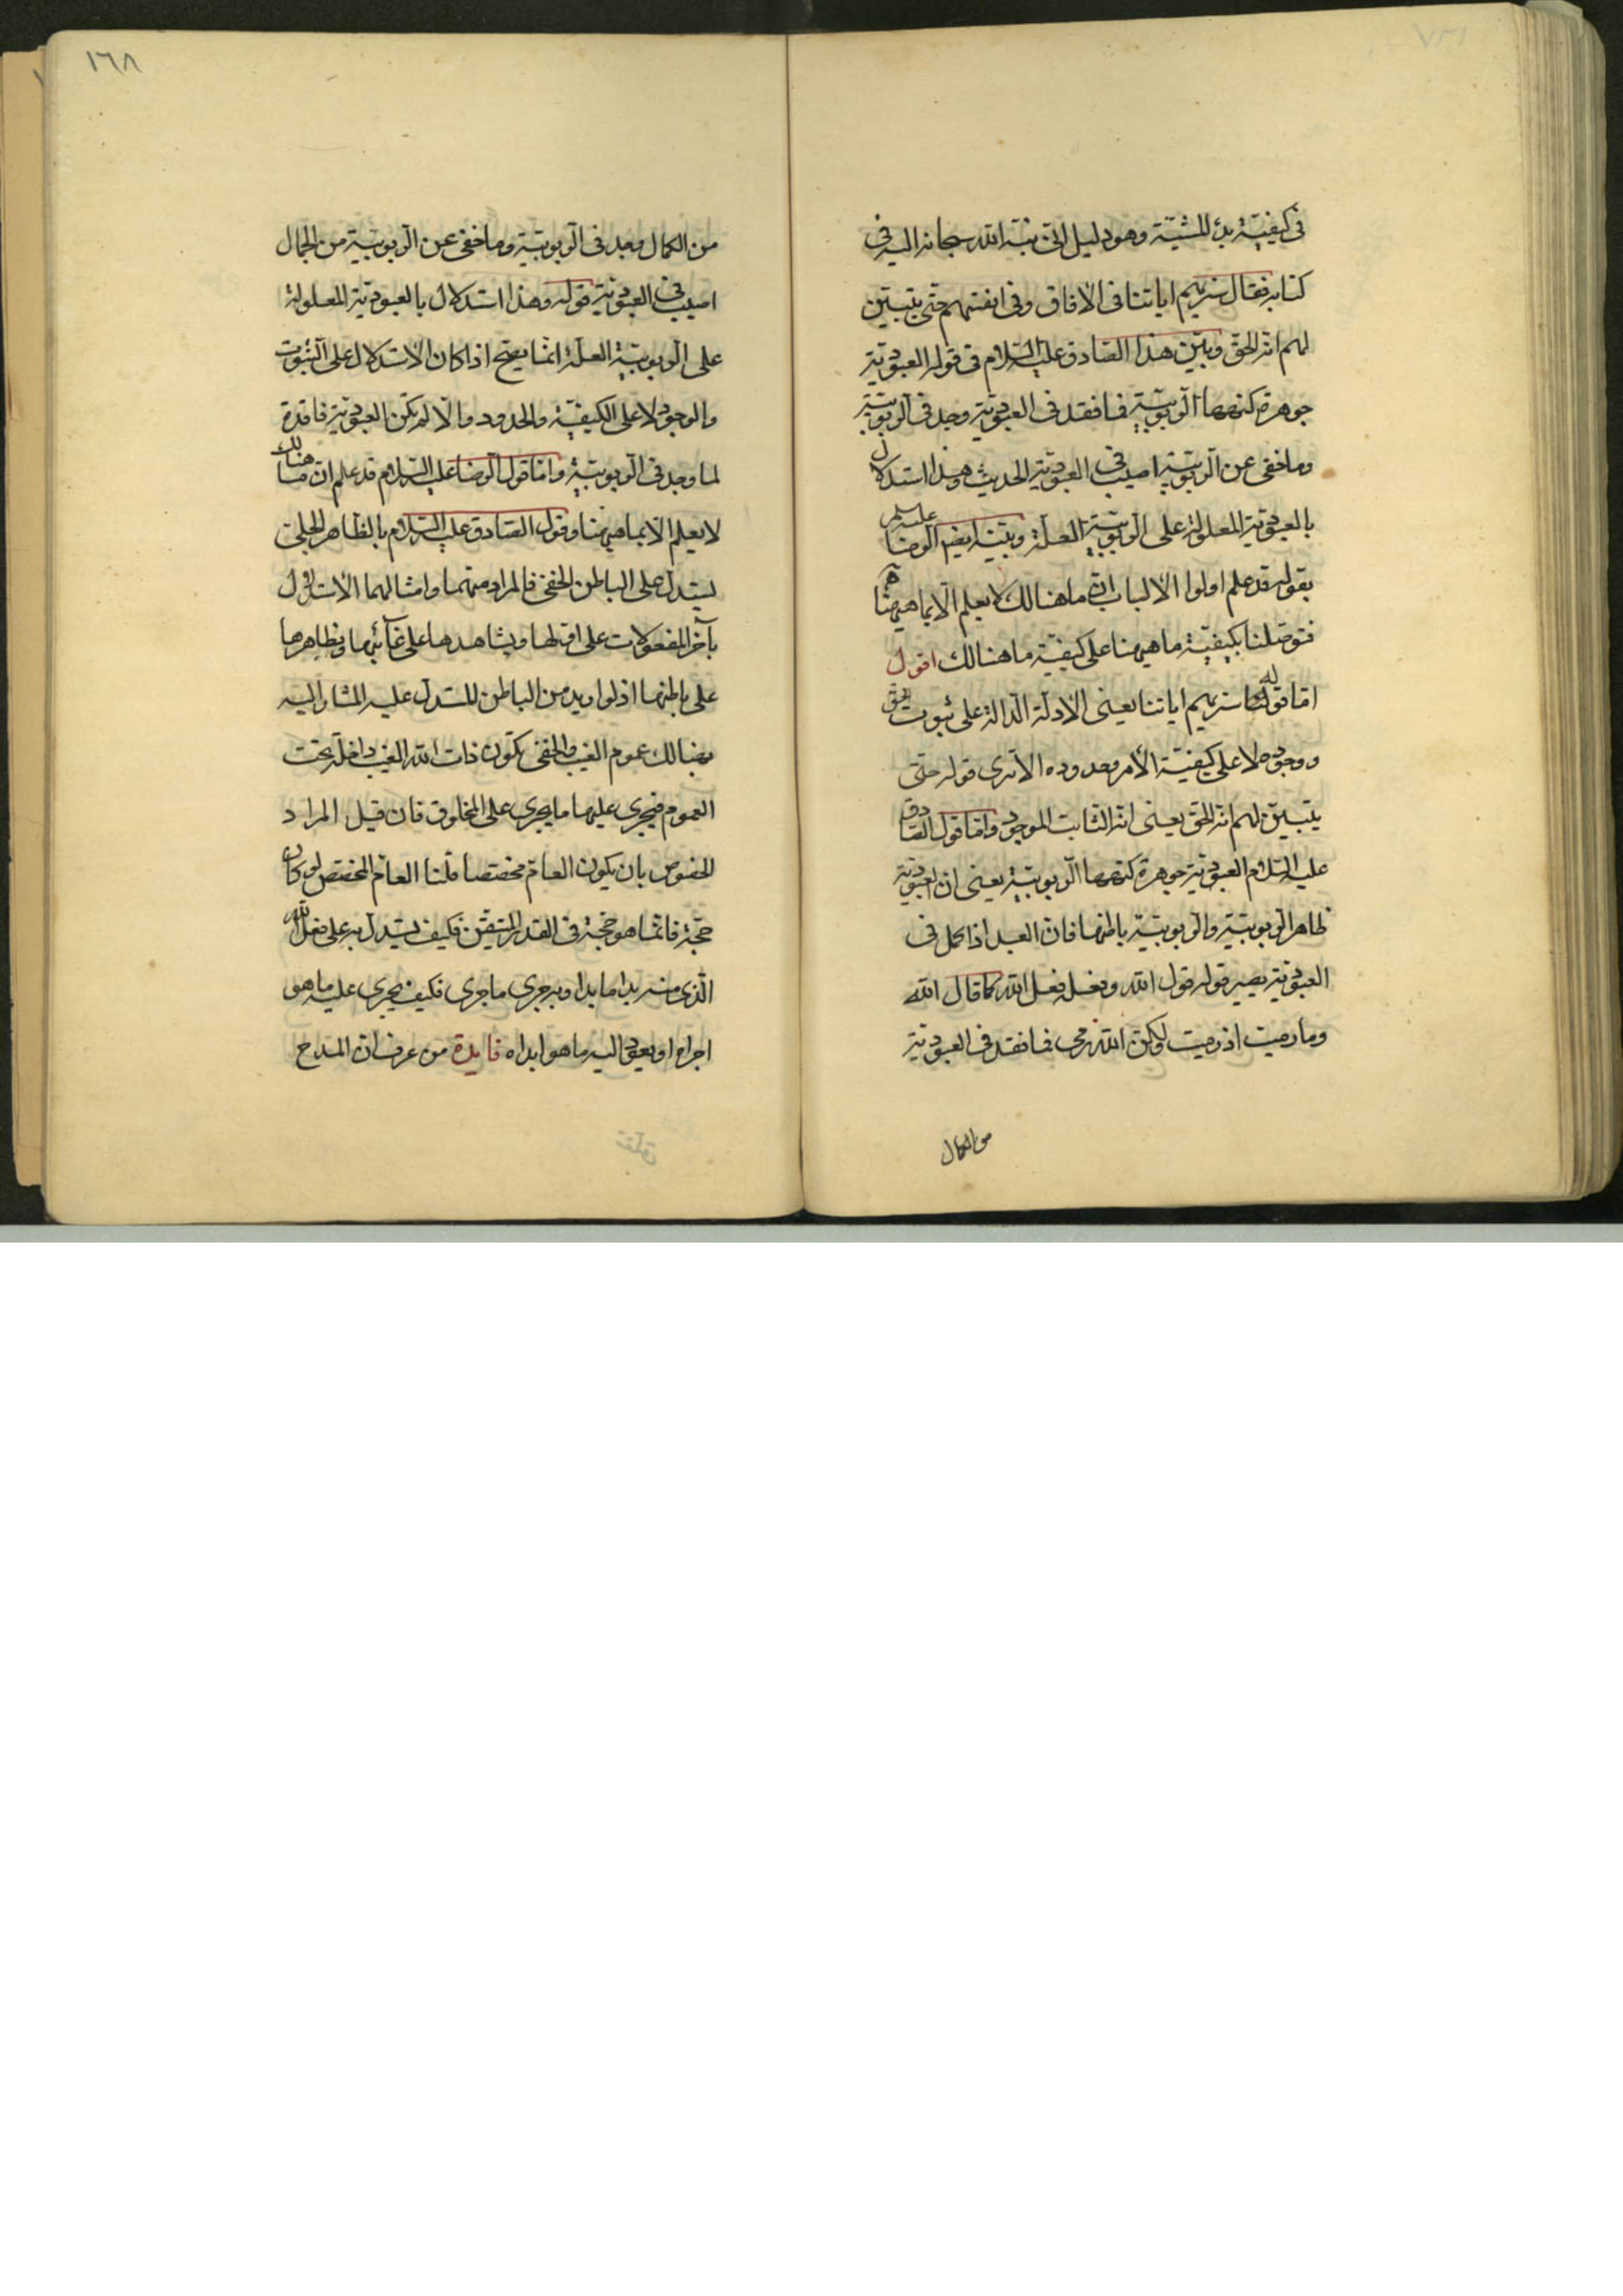 في كيفية بدء المشية وهو دليل انّي نبّه الله سبحانه اليه في
كتابه فقال سنريهم اياتنا في الافاق وفي انفسهم حتى يتبيّن
لهم انه الحق وبيّن هذا الصادق عليه السلام في قوله العبودية
جوهرة كنهها الربوبية فما فقد في العبودية وجد في الربوبية
وما خفي عن الربوبية اصيب في العبودية الحديث وهذا استدلال
بالعبودية المعلولة على الربوبية العلة وبيّنه ايضا الرضا عليه السلم
بقوله قد علم اولوا الالباب انّ ما هنالك لا يعلم الّا بما هيهنا
فتوصلنا بكيفية ما هيهنا على كيفية ما هنالك اقول
امّا قوله تعا سنريهم اياتنا يعني الادلّة الدالة على ثبوت الحق
ووجوده لا على كيفية الامر وحدوده الا ترى قوله حتى
يتبيّن لهم انه الحق يعني انه الثابت الموجود وامّا قول الصادق
عليه السلام العبودية جوهرة كنهها الربوبية يعني ان العبودية
ظاهر الربوبية والربوبية باطنها فان العبد اذا كمل في
العبودية يصير قوله قول الله وفعله فعل الله كما قال الله
وما رميت اذ رميت ولكن الله رمى فما فقد في العبودية
من الكمال
١٦٨
من الكمال وجد في الربوبية وما خفي عن الربوبية من الجمال
اصيب في العبودية قوله وهذا استدلال بالعبودية المعلولة
على الربوبية العلة انما يصح اذا كان الاستدلال على الثبوت
والوجود لا على الكيفية والحدود والّا لم تكن العبودية فاقدة
لما وجد في الربوبية وامّا قول الرضا عليه السلام قد علم ان ما هنالك
لا يعلم الّا بما هيهنا وقول الصادق عليه السلام بالظاهر الجلي
يستدل على الباطن الخفي فالمراد منهما وامثالهما الاستدلال
بآخر المفعولات على اولها وبشاهدها على غائبها وبظاهرها
على باطنها اذ لو اريد من الباطن المستدل عليه المشار اليه
بهنالك عموم الغيب والخفي تكون ذات الله الغيب داخلة تحت
العموم فيجري عليها ما يجري على المخلوق فان قيل المراد
الخصوص بان يكون العام مختصا قلنا العام المختص لو كان
حجة فانما هو حجة في القدر المتيقن فكيف يستدل به على فعل الله
الّذي منه بدا ما بدا وبه جرى ما جرى فكيف يجري عليه ما هو
اجراه او يعود اليه ما هو ابداه فايدة من عرف ان المدح